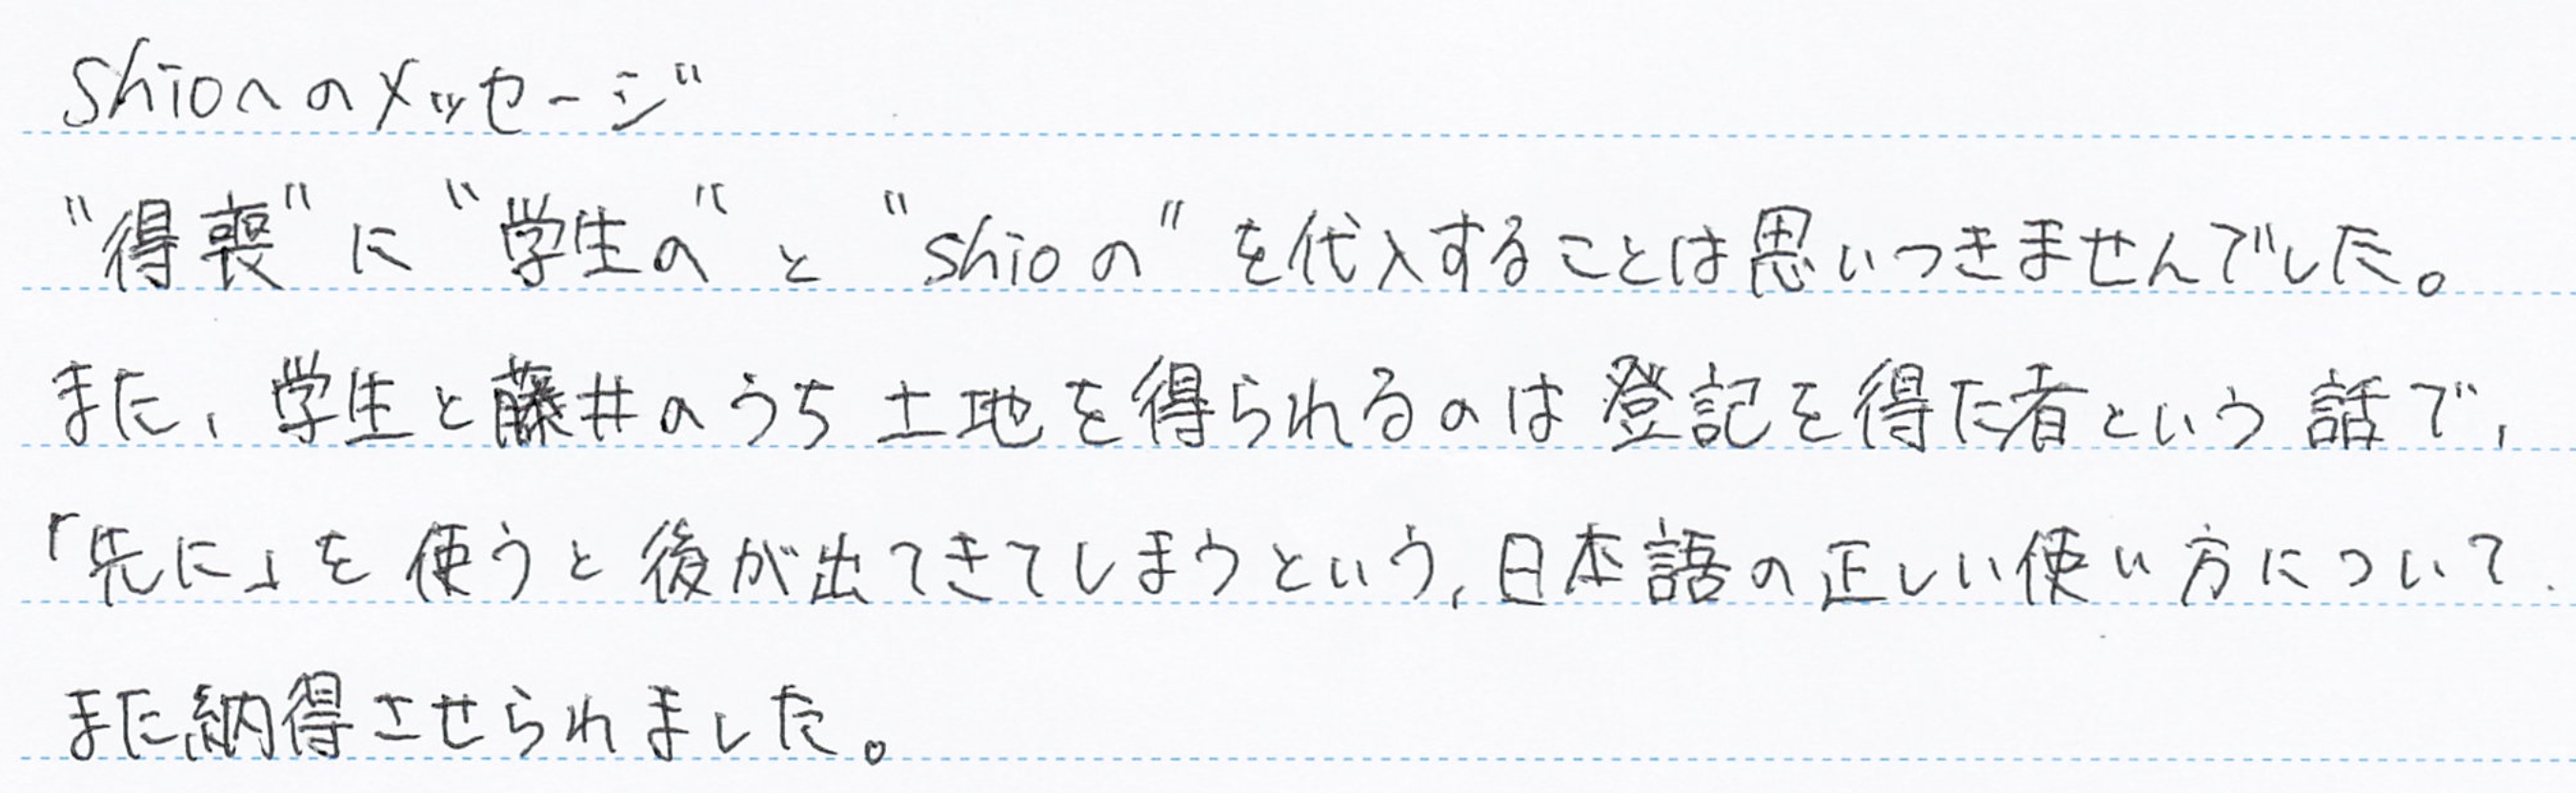 Shioへのメッセージ
"得喪"に"学生の"と"Shioの"を代入することは思いつきませんでした。
また、学生と藤井のうち土地を得られるのは登記を得た者という話で、
「先に」を使うと後が出てきてしまうという、日本語の正しい使い方について
また納得させられました。